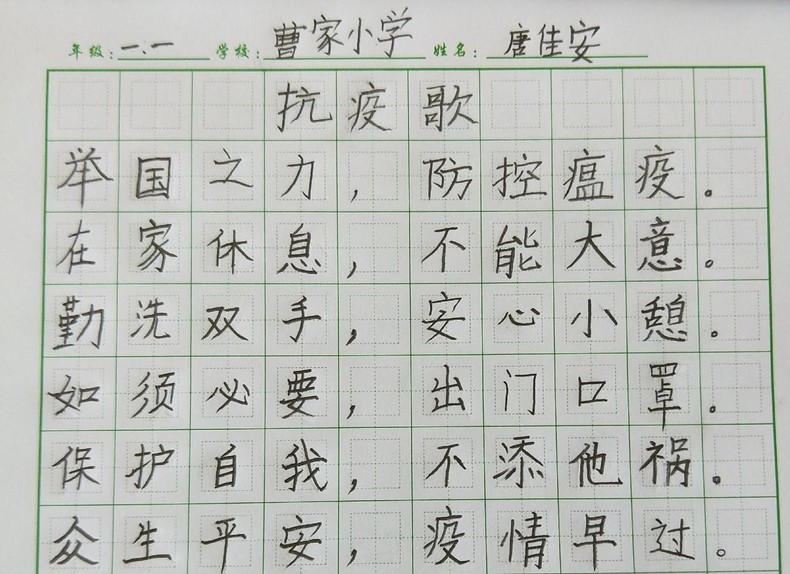 年级：一、一 学校：曹家小学 姓名：唐佳安
抗疫歌
举国之力，防控瘟疫。
在家休息，不能大意。
勤洗双手，安心小憩。
如须必要，出门口罩。
保护自我，不添他祸。
众生平安，疫情早过。